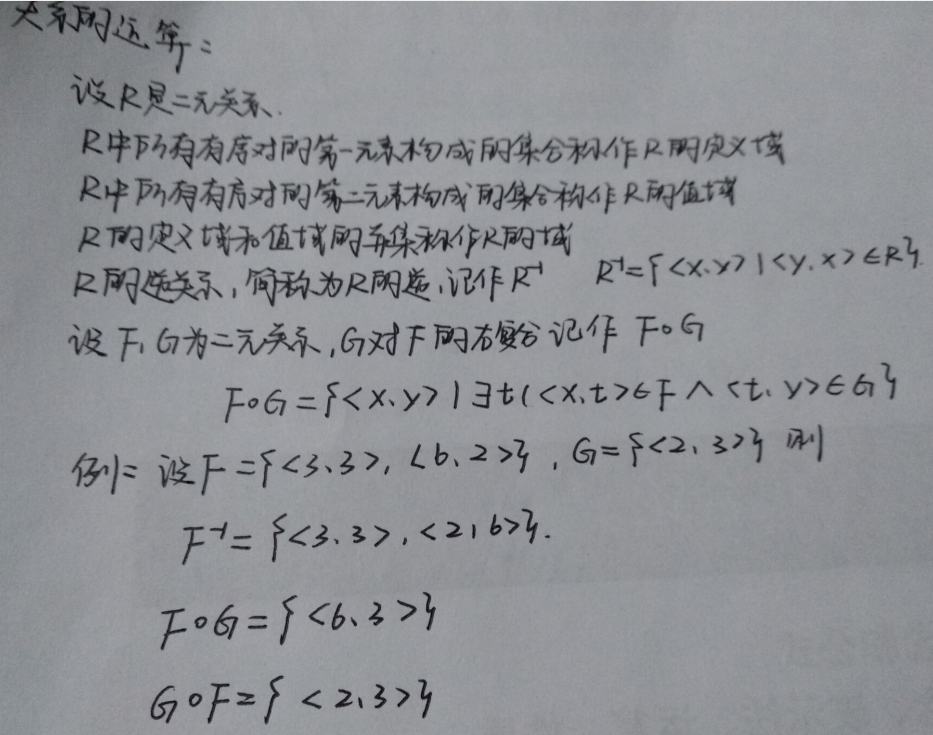 关系的运算：
设R是二元关系.
R中所有有序对的第一元素构成的集合称作R的定义域
R中所有有序对的第二元素构成的集合称作R的值域
R的定义域和值域的并集称作R的域
R的逆关系，简称为R的逆，记作R⁻¹ R⁻¹={<x.y>|<y.x>∈R}.
设F、G为二元关系，G对F的右复合记作 F∘G
F∘G={<x、y>|∃t(<x.t>∈F∧<t、y>∈G}
例1= 设F={<3.3>,<6、2>}，G={<2、3>} 则
F⁻¹={<3.3>,<2,6>}.
F∘G={<6.3>}
G∘F={<2.3>}